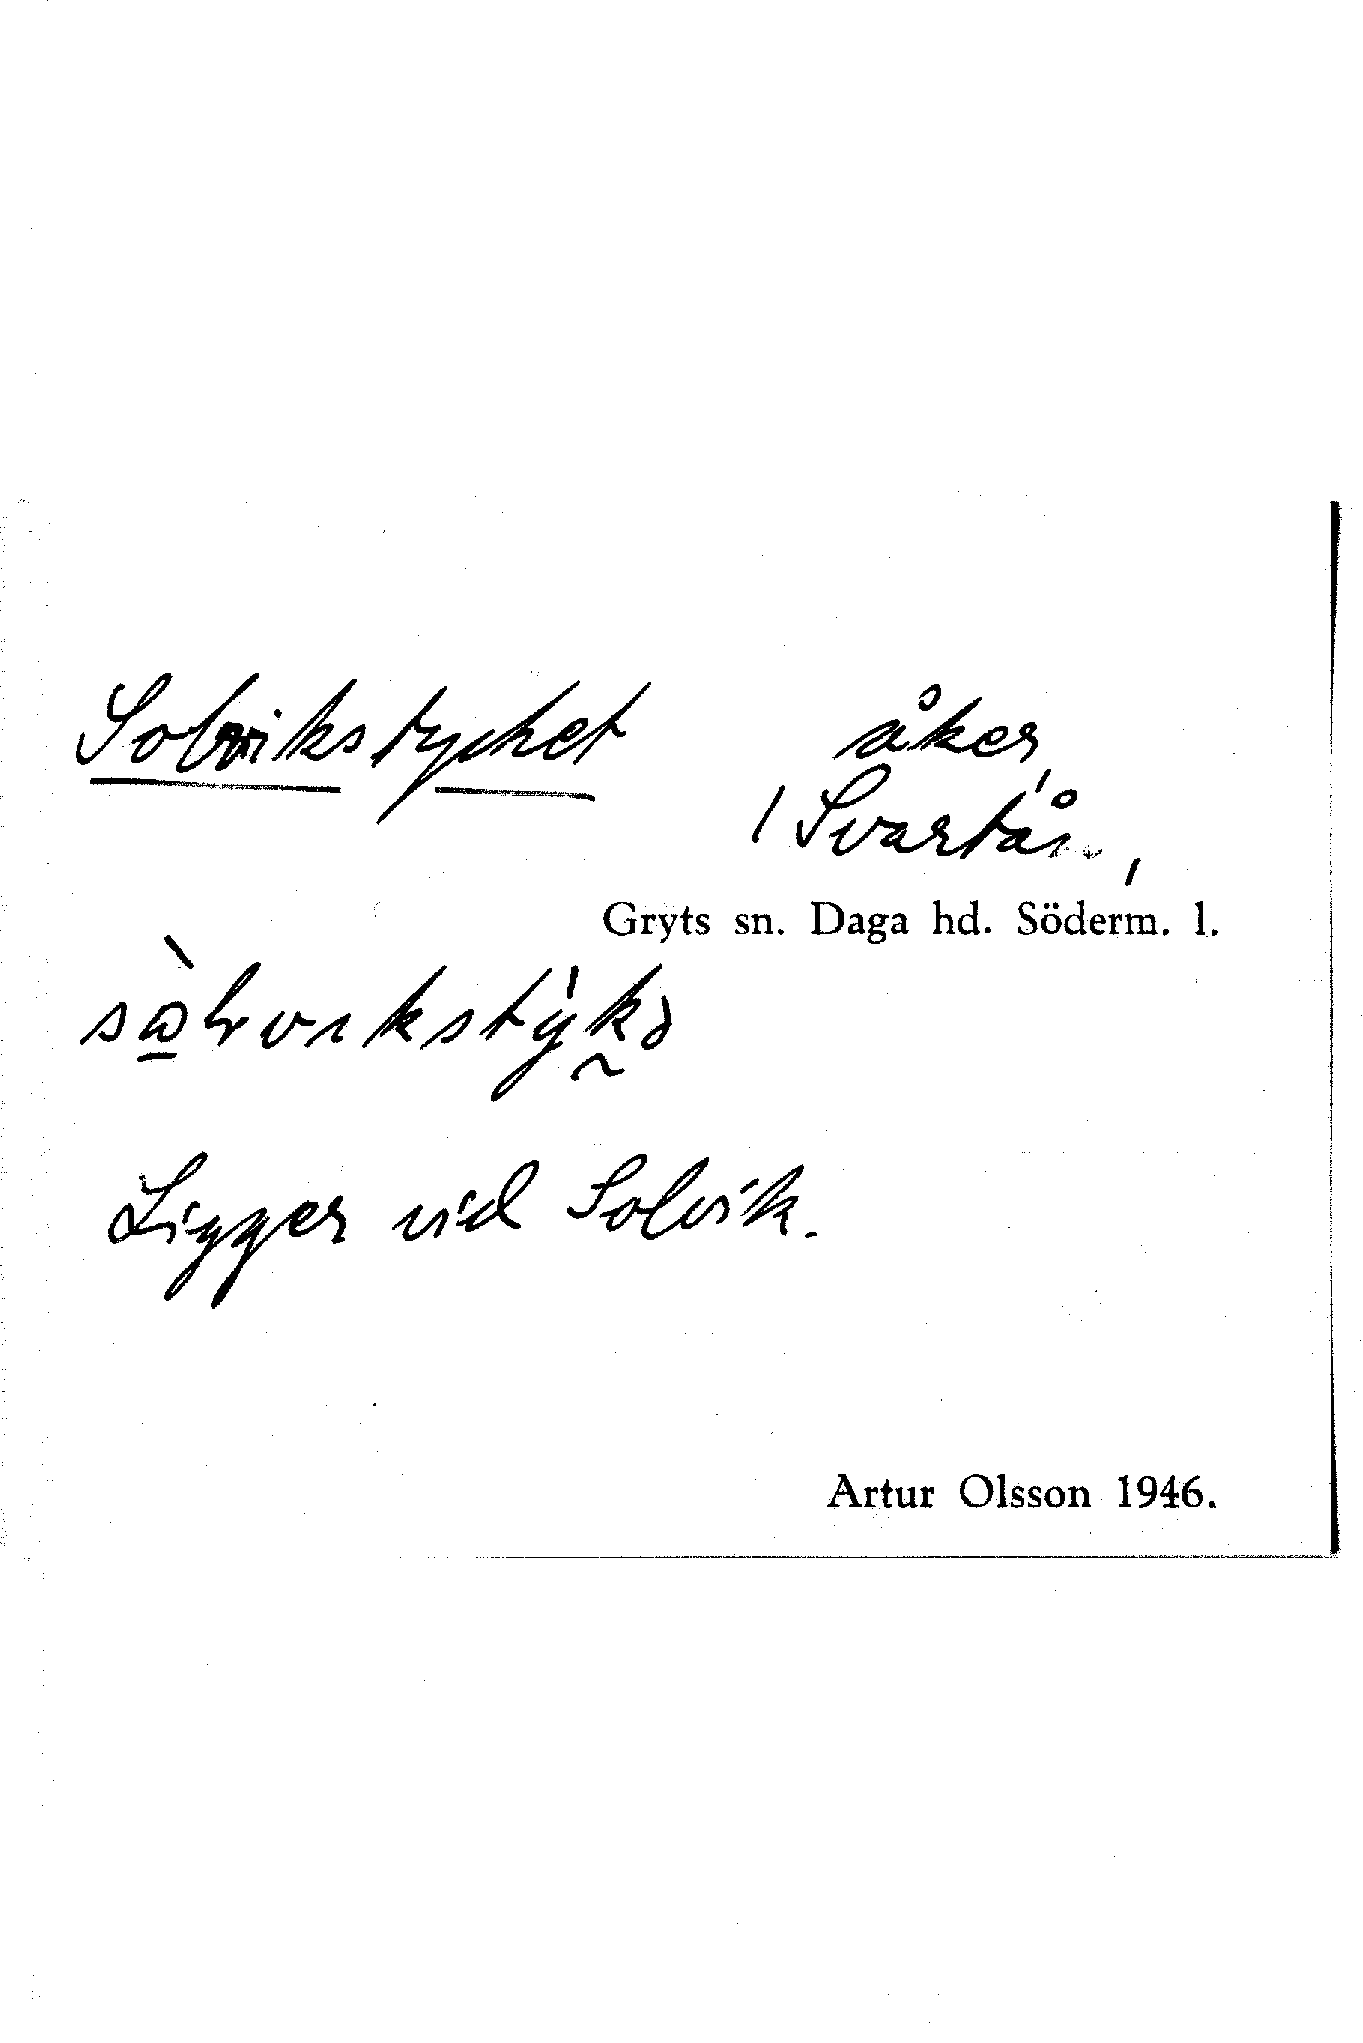 Solvikstycket åker,
/ Svartån,
Gryts sn. Daga hd. Söderm. l.
Ligger vid Solvik.
Artur Olsson 1946.